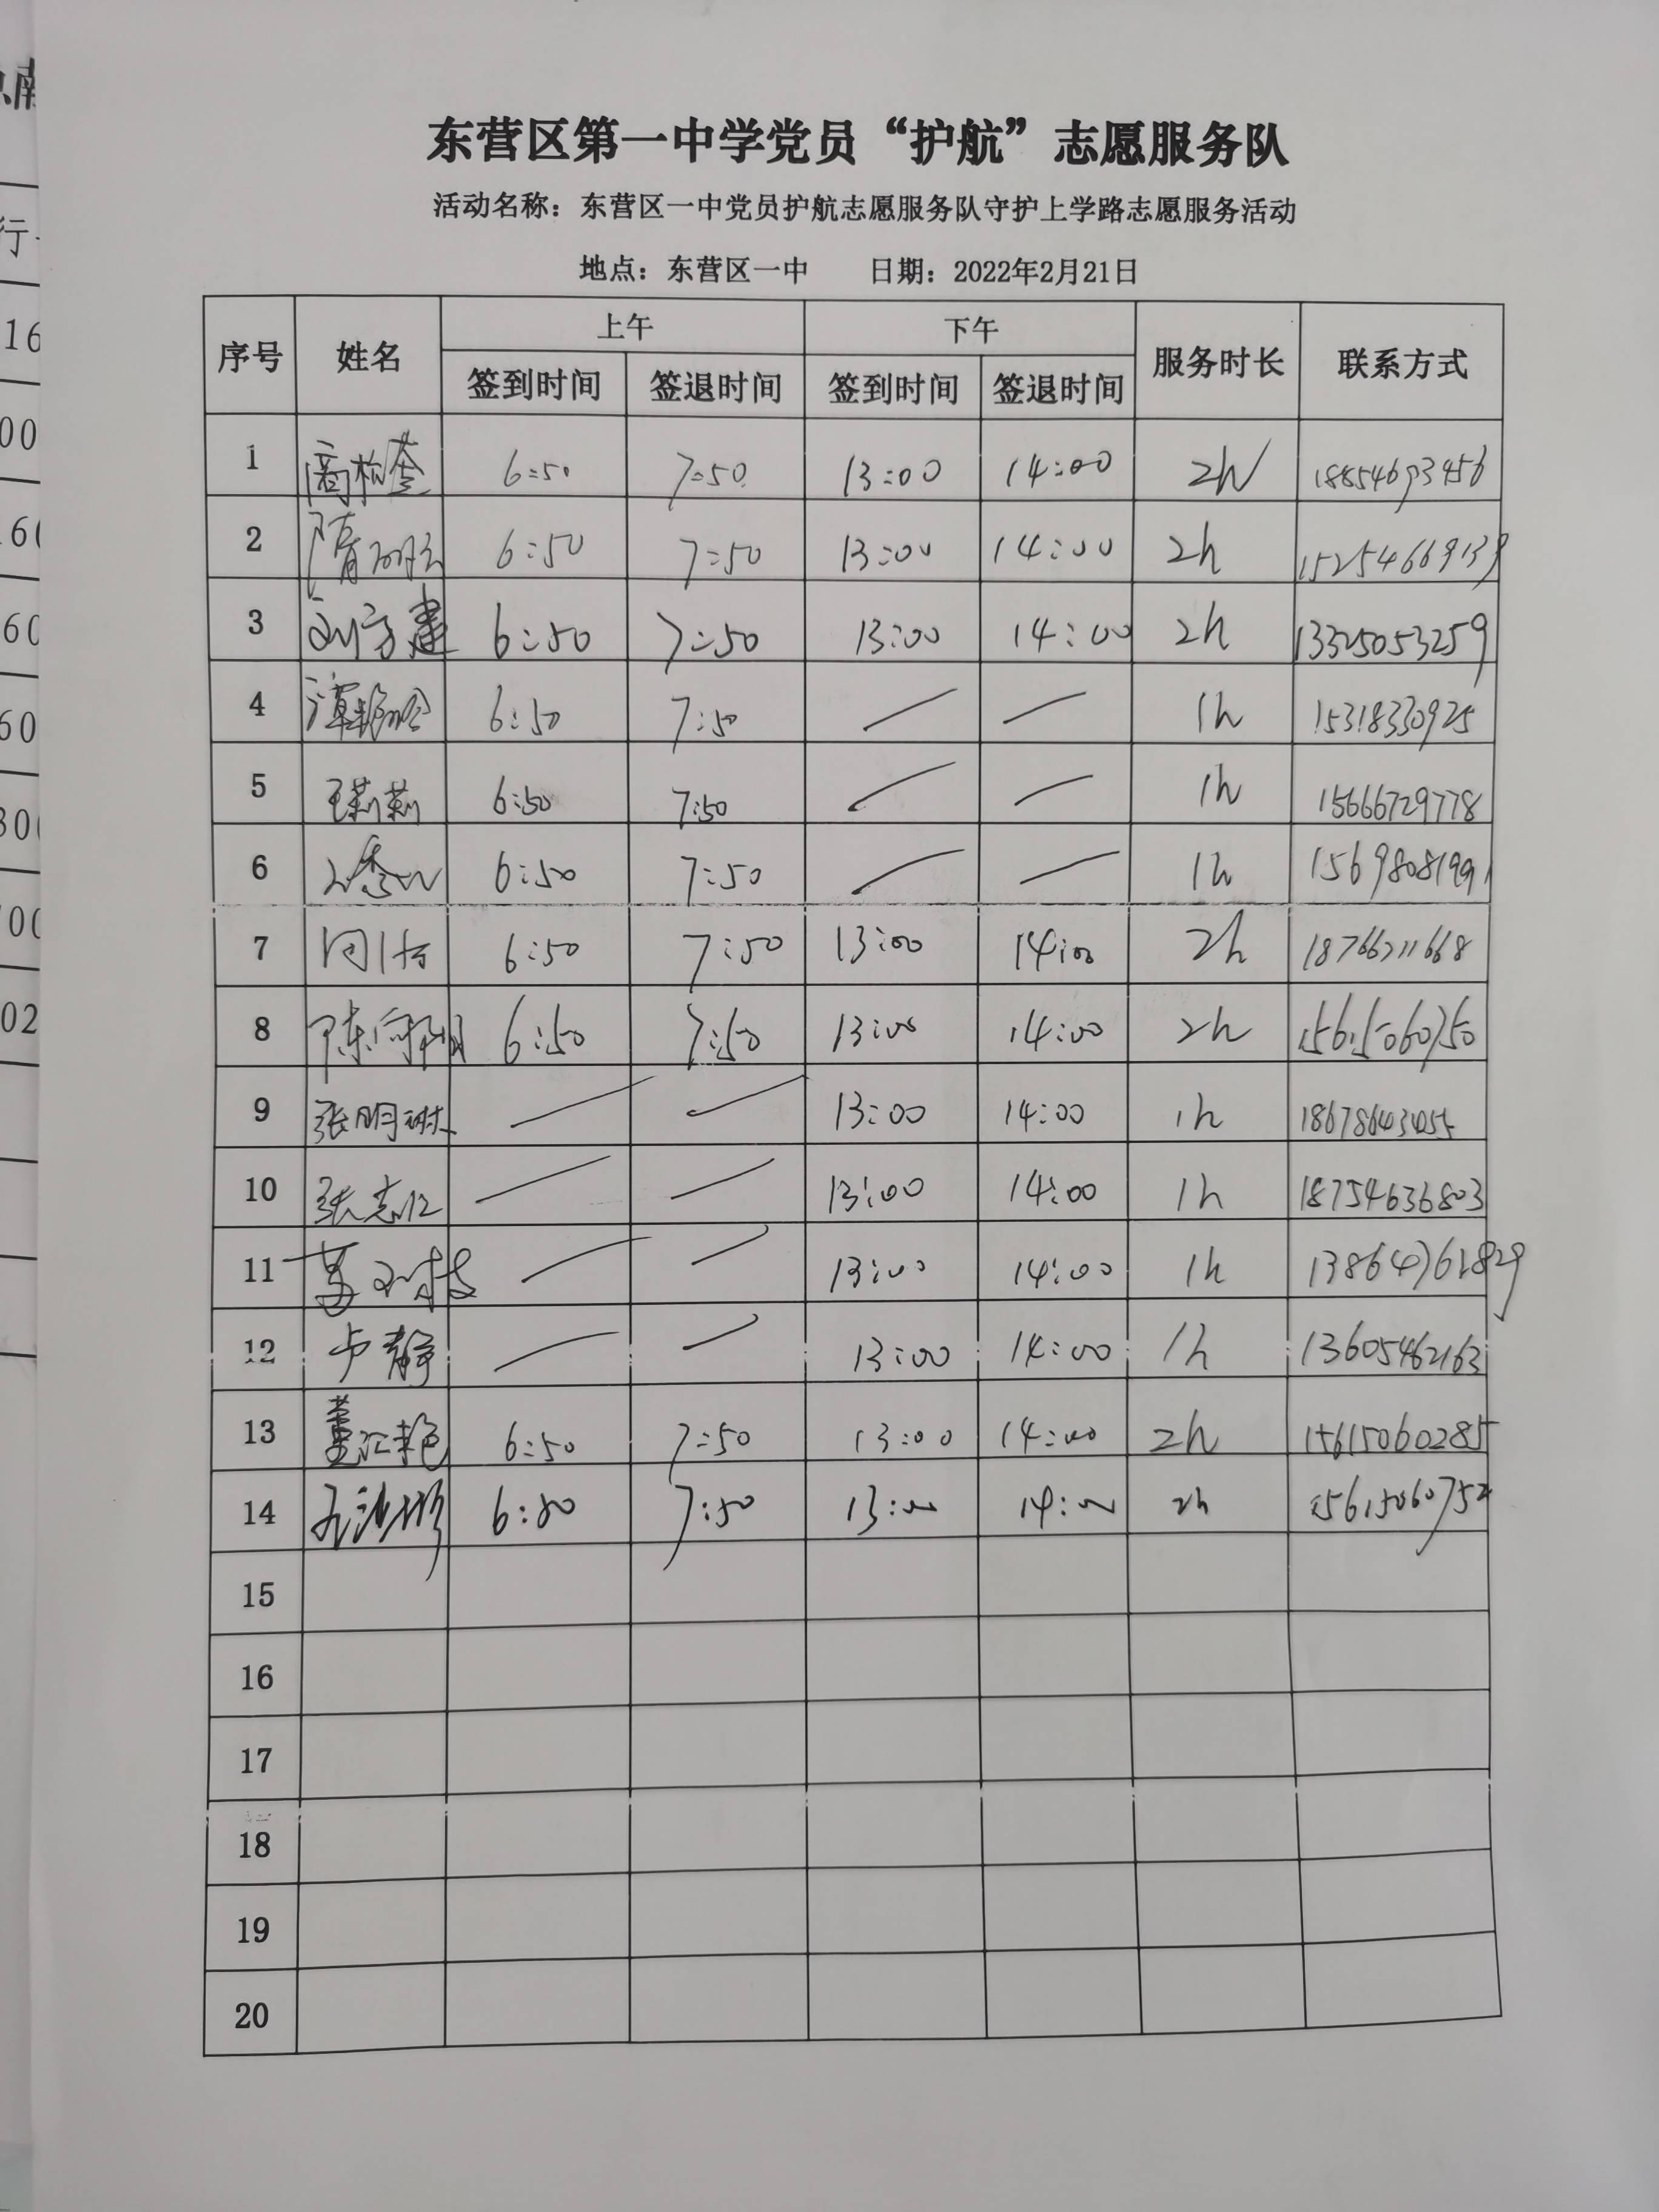 东营区第一中学党员“护航”志愿服务队
活动名称：东营区一中党员护航志愿服务队守护上学路志愿服务活动
地点：东营区一中 日期：2022年2月21日
序号 姓名 上午 下午 服务时长 联系方式
签到时间 签退时间 签到时间 签退时间
1 6:50 7:50 13:00 14:00 2h 18854693456
2 隋 6:50 7:50 13:00 14:00 2h 15254669139
3 刘方建 6:50 7:50 13:00 14:00 2h 13325053259
4 谭艳玲 6:50 7:50 1h 15318330925
5 王莉莉 6:50 7:50 1h 15666729778
6 6:50 7:50 1h 15698081991
7 6:50 7:50 13:00 14:00 2h 18766711668
8 陈向阳 6:50 7:50 13:00 14:00 2h 15615060750
9 张明 13:00 14:00 1h
10 张志 13:00 14:00 1h 18754636803
11 13:00 14:00 1h
12 卢静 13:00 14:00 1h 13605462163
13 董江艳 6:50 7:50 13:00 14:00 2h 15615060285
14 6:50 7:50 13:00 14:00 2h 15615060752
15
16
17
18
19
20
行
16
00
60
60
02